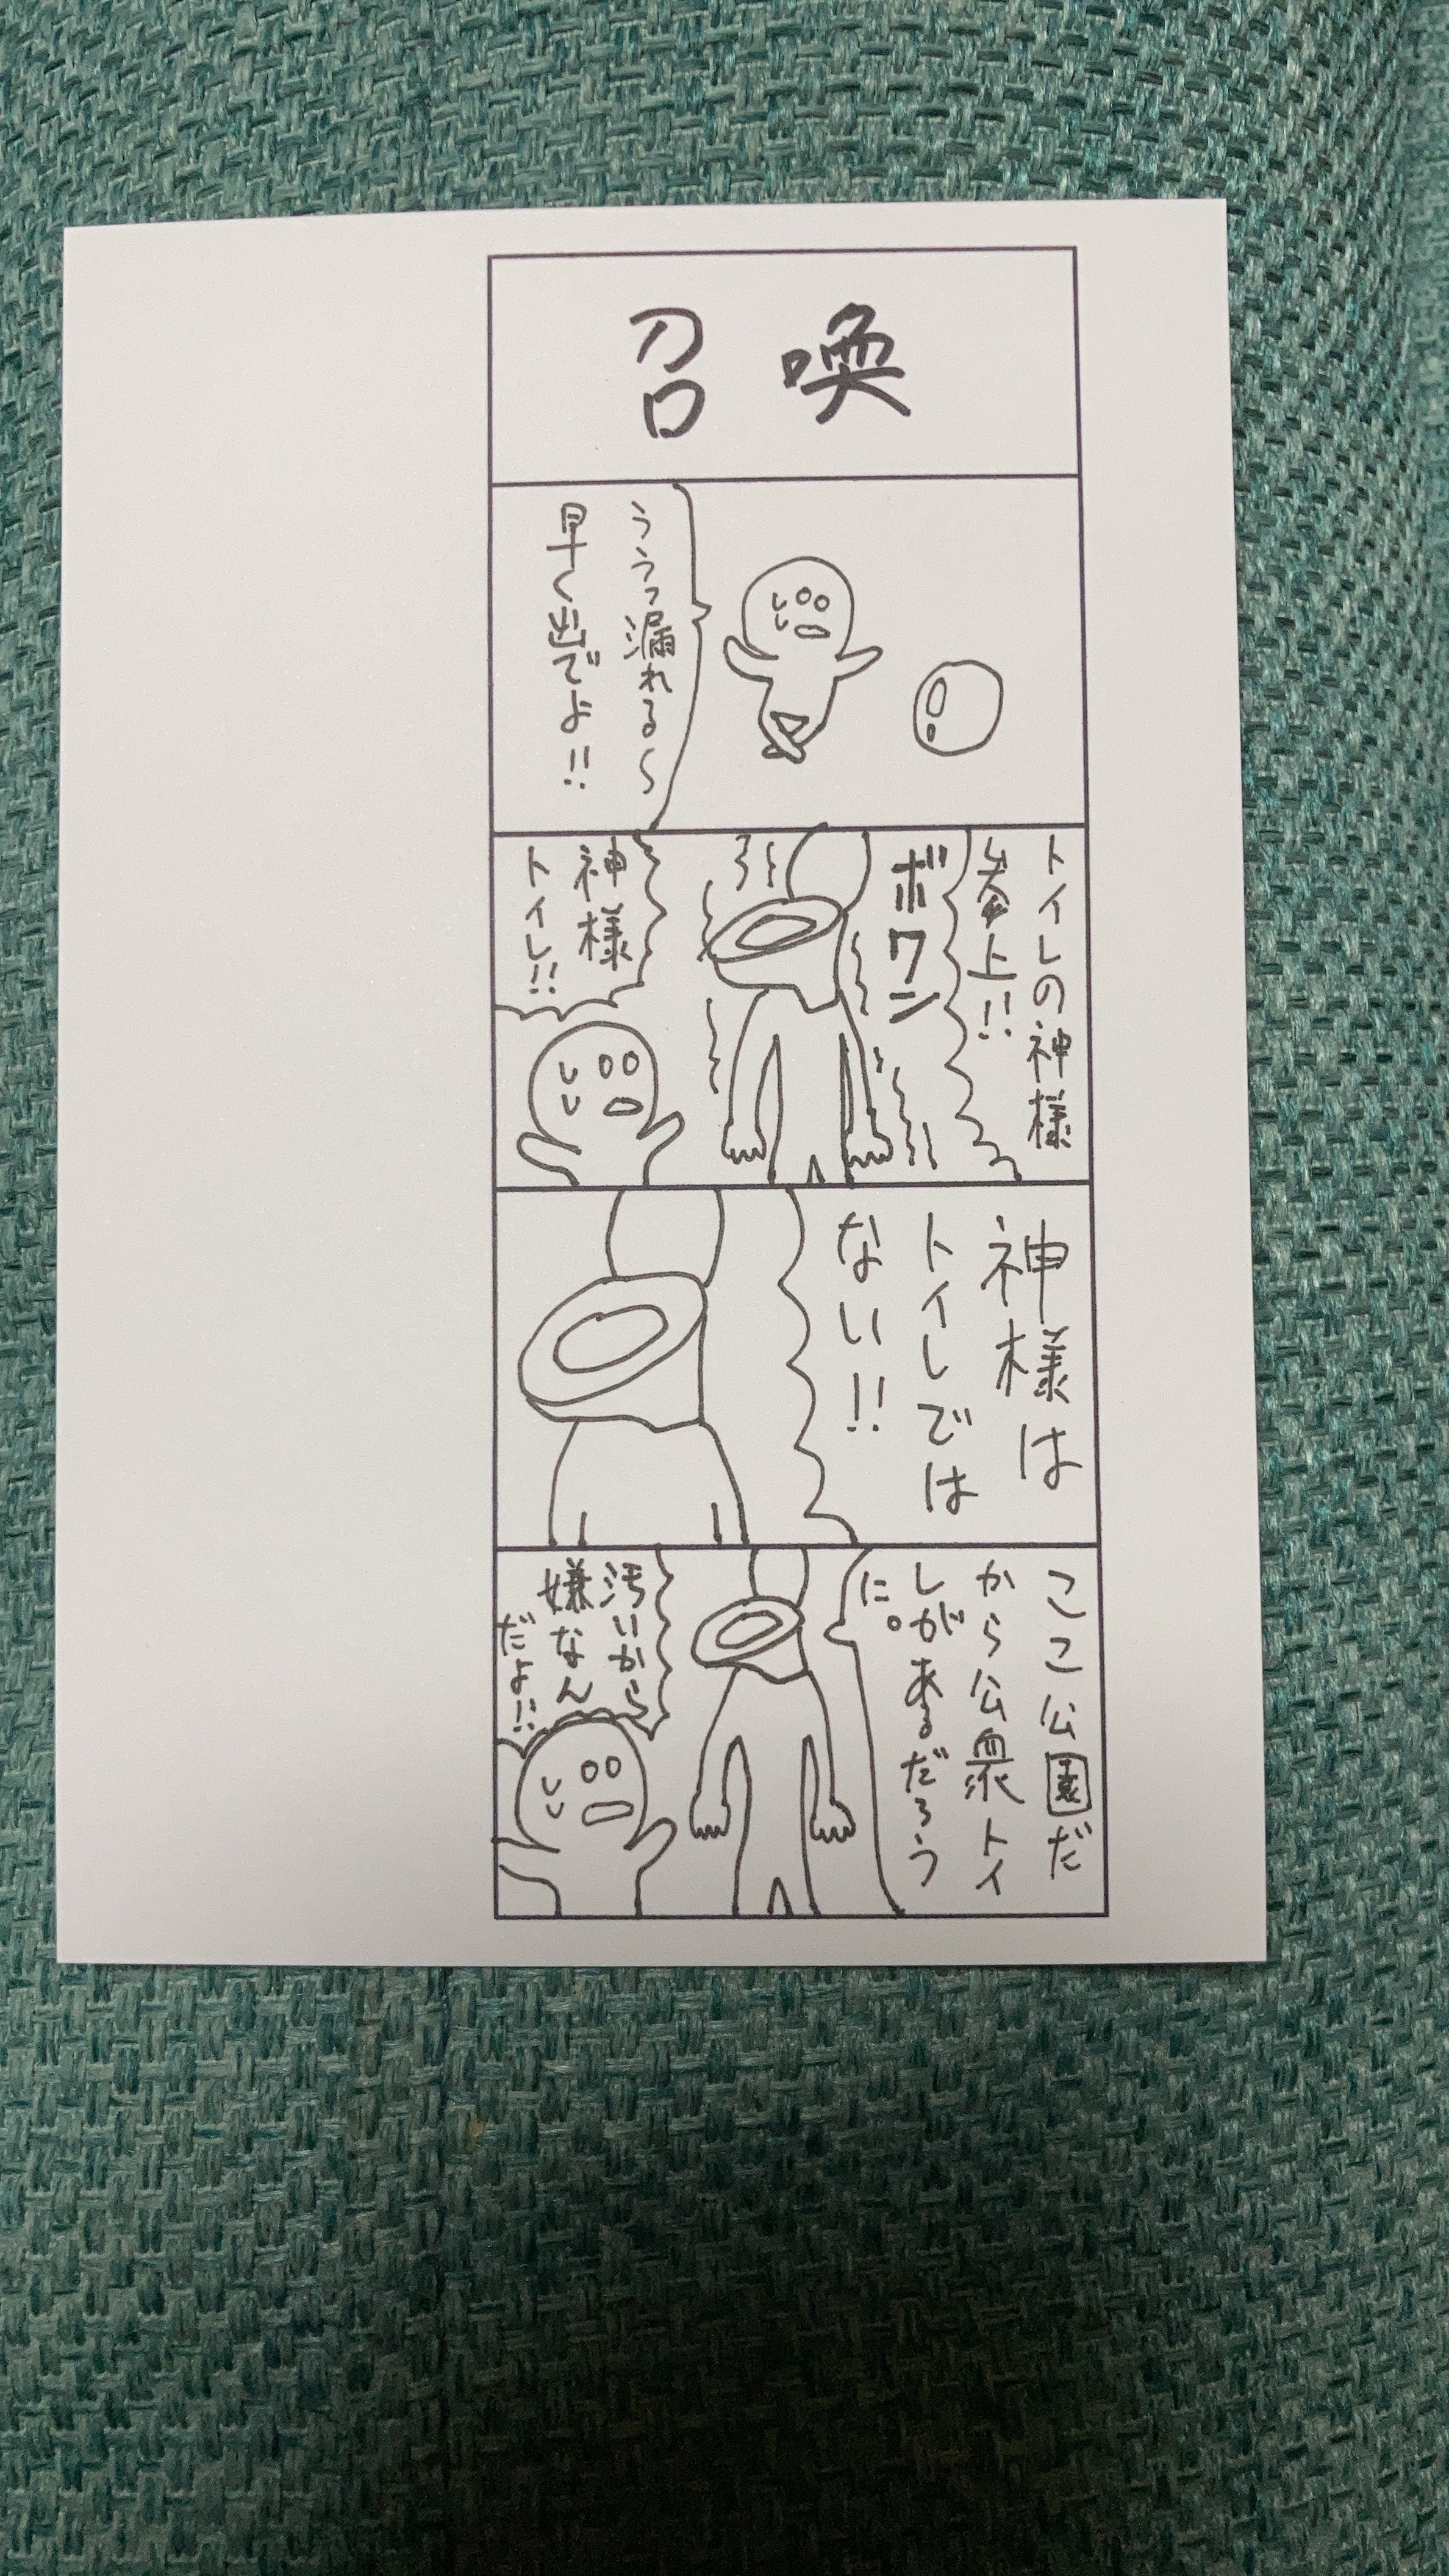 召喚
ううっ漏れる〜
早く出でよ!!
トイレの神様
参上!!
ボワン
神様
トイレ!!
神様は
トイレでは
ない!!
ここ公園だ
から公衆トイ
レがあるだろう
に。
汚いから
嫌なん
だよ!!